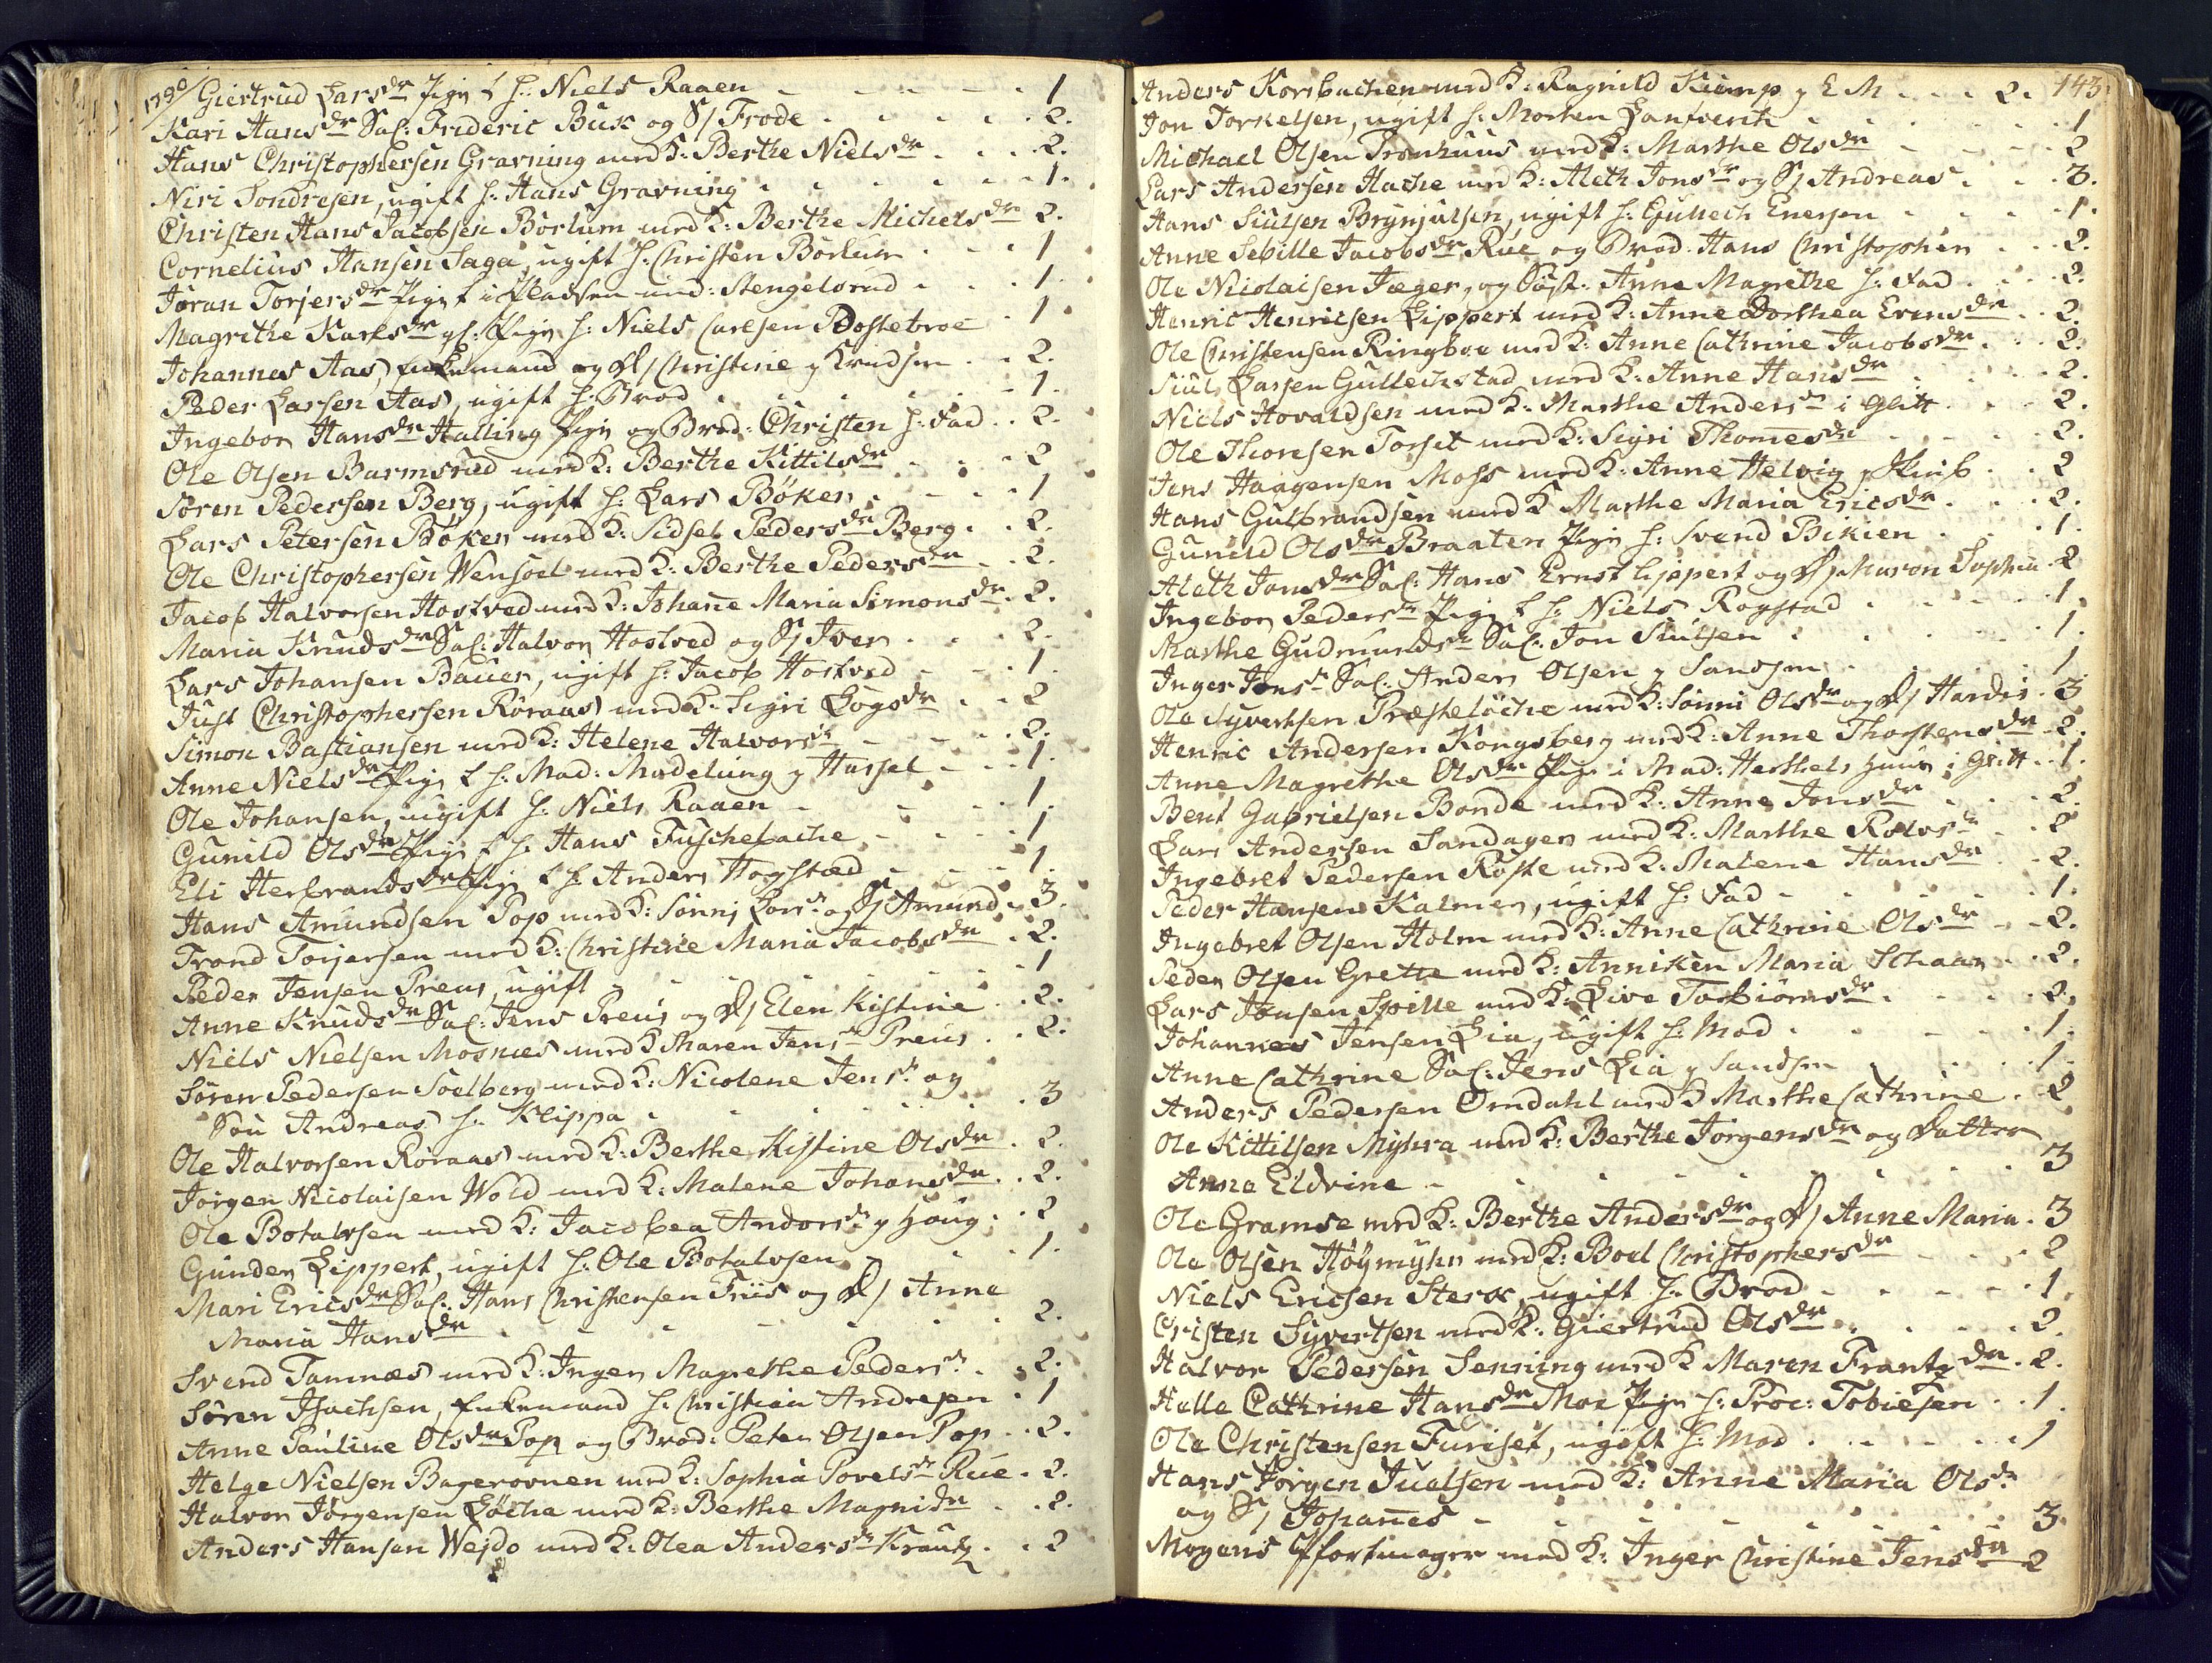 1790/ Giertrud Larsdr Pige f h: Niels Raaen - - - - - 1
Kari Hansdr Sal: Frideric Busk og S/ Frode - - - - 2.
Hans Christophersen Gravning med K: Berthe Nielsdr - - - 2.
Niri Tondresen, ugift h: Hans Gravning - - - - - 1.
Christen Hans Jacobsen Borlum med K: Berthe Michelsdr 2.
Cornelius Hansen Saga, ugift h: Christen Borlum - - - 1
Joran Torjersdr Pige f i Pladsen und: Stengelsrud - - - 1.
Magrethe Karlsdr gl: Pige h: Niels Carlsen Postebroe - 1.
Johannes Aas, enkemand og D/ Christine g Knudsen - - 2.
Peder Larsen Aas, ugift h: Brod - - - - - 1.
Ingebor Hansdr Halling Pige og Brod: Christen h: Fad - - 2.
Ole Olsen Barmsrud med K: Berthe Kittilsdr - - - 2
Sören Pedersen Berg, ugift h: Lars Böker - - - - 1
Lars Petersen Böker med K: Sidsel Pedersdr Berg - - 2.
Ole Christophersen Wensoel med K: Berthe Pedersdr - - 2.
Jacob Halvorsen Hostved med K: Johañe Maria Simonsdr - 2.
Maria Knudsdr Sal: Halvor Hostved og S/ Iver - - - 2.
Lars Johansen Bauer, ugift h: Jacob Hostved - - - 1.
Just Christophersen Röraas med K: Sigri Bogsdr - - 2
Simon Bastiansen med K: Helene Halvorsdr - - - - 2.
Anne Nielsdr Pige f h: Mad: Madelung g Hassel - - - 1.
Ole Johansen, ugift h: Niels Raaen - - - - 1.
Gunild Olsdr Pige f h: Hans Fuschebache - - - - 1
Eli Herbrandsdr Pige f h: Anders Hogstad - - - 1.
Hans Amundsen Pop med K: Sönnj Larsdr og S/ Amund - 3.
Trond Torjersen med K: Christine Maria Jacobsdr - 2.
Peder Jensen Preus, ugift - - - - - - 1
Anne Knudsdr Sal: Jens Preus og D/ Elen Kistine - - 2.
Niels Nielsen Mosnæs med K Maren Jensdr Preus - - 2.
Sören Pedersen Soelberg med K: Nicolene Jensdr og
Sön Andreas h: Klippa - - - - - - 3
Ole Halvorsen Röraas med K: Berthe Kistine Olsdr - 2.
Jörgen Nicolaisen Wold med K: Malene Johansdr - - 2.
Ole Botalvsen med K: Jacobea Andorsdr g Houg - - 2
Gunder Lippert, ugift h: Ole Botalvsen - - - 1.
Mari Ericsdr Sal: Hans Christensen Friis og D/ Anne
Maria Hansdr - - - - - - - 2.
Svend Tamnæs med K: Inger Magrethe Pedersdr - - 2.
Sören Isachsen, enkemand h: Christian Andresen - 1
Anne Pauline Olsdr Pop og Brod: Peter Olsen Pop - - 2.
Helge Nielsen Bagerovnen med K: Sophia Povelsdr Rue - 2.
Halvor Jörgensen Löche med K: Berthe Magnidr - - 2.
Anders Hansen Wejdo med K: Olea Andersdr Krautz - - 2
143.
Anders Korsbachen med K: Ragnild Kiemp g E M - - - 2.
Jon Torkelsen, ugift h: Morten Lantverk - - - - 1
Michael Olsen Tronhuus med K: Marthe Olsdr - - - 2
Lars Andersen Hache med K: Aleth Jonsdr og S/ Andreas - - 3.
Hans Siulsen Brynjulsen, ugift h: Gullech Enersen - - - 1.
Anne Sebille Jacobsdr Rue og Brod: Hans Christopher - - 2.
Ole Nicolaisen Jæger, og Söst: Anne Magrethe h: Fad - - 2.
Henric Henricsen Lippert med K: Anne Dorthea Evensdr - - 2.
Ole Christensen Ringboe med K: Anne Cathrine Jacobsdr - - 2.
Siul Larsen Gullechstad med K: Anne Hansdr - - - 2.
Niels Hovaldsen med K: Marthe Andersdr i Glitt - - - 2.
Ole Thoresen Torset med K: Sigri Thomesdr - - - 2.
Jens Haagensen Moss med K: Anne Helvig g - - 2
Hans Gulbrandsen med K Marthe Maria Ericsdr - - - 2.
Gunild Olsdr Braaten Pige h: Svend Bikien - - - 1.
Aleth Jonsdr Sal: Hans Ernst Lippert og D/ Maren Sophia 2
Ingebor Pedersdr Pige f h: Niels Rogstad - - - - 1.
Marthe Gudmundsdr Sal: Jon Siulsen - - - - 1.
Inger Jonsdr Sal: Anders Olsen g Sandsvn - - - 1
Ole Syvertsen Præsteløche med K: Sönni Olsdr og D/ Hardis - 3
Henric Andersen Kongsberg med K: Anne Thorstensdr - 2.
Anne Magrethe Olsdr Pige i Mad: Herthels huus i Glitt - 1.
Bent Gabrielsen Bonde med K: Anne Jonsdr - - - 2.
Lars Andersen Sandager med K: Marthe Rolvsdr - - 2
Ingebret Pedersen Roste med K: Malene Hansdr - - 2.
Peder Hansen Kalmer, ugift h: Fad - - - - 1.
Ingebret Olsen Holm med K: Anne Cathrine Olsdr - - 2.
Peder Olsen Grette med K: Anniken Maria Schaar - - 2.
Lars Jonsen Spille med K: Live Torbiörnsdr - - - - 2.
Johannes Jensen Lia, ugift h: Mod - - - - 1.
Anne Cathrine Sal: Jens Lia g Sandsvn - - - - 1.
Anders Pedersen Omdahl med K Marthe Cathrine - 2
Ole Kittilsen Myhra med K: Berthe Jörgensdr og Datter
Anna Eldvine - - - - - - - 3
Ole Gramse med K: Berthe Andersdr og D/ Anne Maria - 3
Ole Olsen Höymyhr med K: Boel Christophersdr - - - 2
Niels Ericsen Steræ, ugift h: Brod - - - - 1.
Cristen Syvertsen med K: Giertrud Olsdr - - - - 2.
Halvor Pedersen Senning med K Maren Frantzdr - 2.
Helle Cathrine Hansdr Moe Pige h: Proc: Tobiesen - - 1.
Ole Christensen Furiset, ugift h: Mod - - - - 1
Hans Jörgen Juelsen med K: Anne Maria Olsdr
og S/ Johañes - - - - - - - 3.
Mogens Pfortmager med K: Inger Christine Jensdr 2